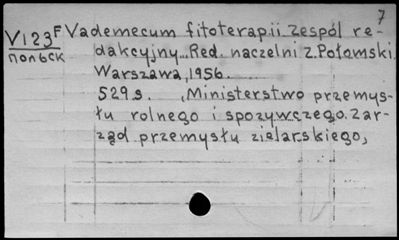 7
V123F Vademecum fitoterapii. Zespól re-
польск dakcyjny... Red. naczelni Z. Potamski.
Warszawa, 1956.
529 s. , Ministerstwo przemys-
łu rolnego i spozywczego. Zar-
ząd przemysłu zielarskiego,